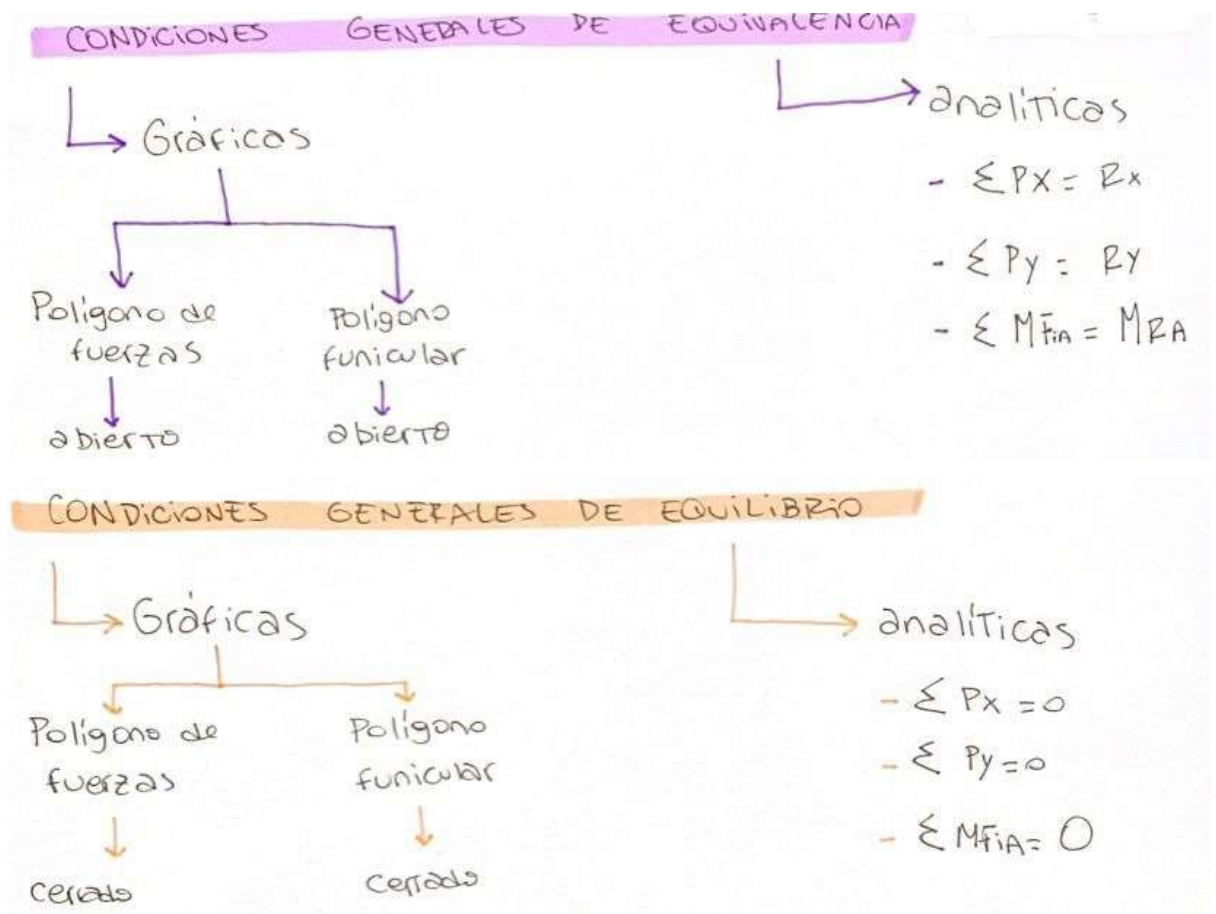 CONDICIONES GENERALES DE EQUIVALENCIA
Gráficas
Polígono de
fuerzas
abierto
Polígono
funicular
abierto
analíticas
- Σ Px = Rx
- Σ Py = Ry
- Σ MFiA = MRA
CONDICIONES GENERALES DE EQUILIBRIO
Gráficas
Polígono de
fuerzas
cerrado
Polígono
funicular
cerrado
analíticas
- Σ Px = 0
- Σ Py = 0
- Σ MFiA = 0